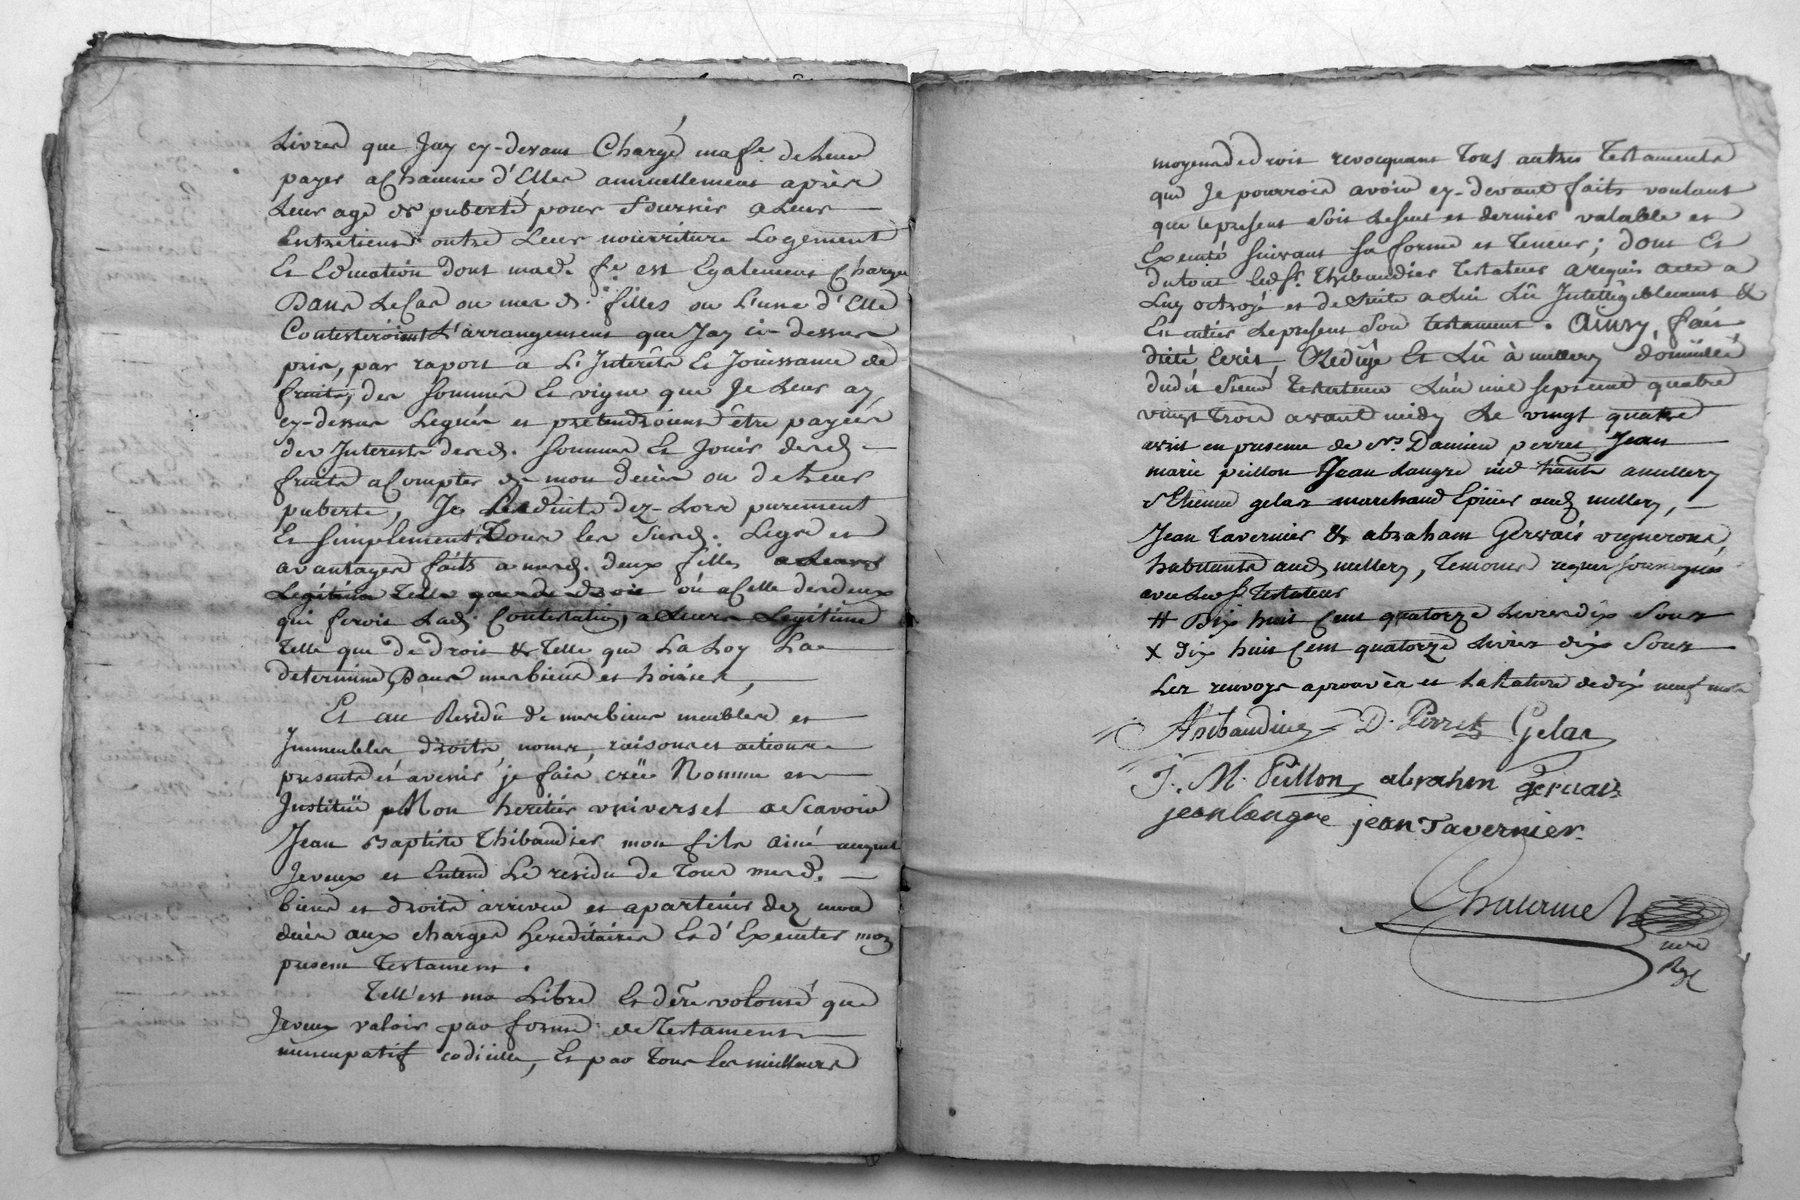 Livres que Jay cy-devant Chargé ma fe. de leur
payer a chacune d'Elles annuellement après
Leur age de puberté pour fournir a leur
Entretient outre Leur nourriture Logement
Et Education dont mad. fe. est Egalement Chargé
Dans Le Cas ou mesd. filles ou L'une d'Elle
Contesteroient L'arrangement que Jay cy dessus
pris, par raport à L'Interêts Et Jouissance de
fruits, des sommes Et vigne que Je Leur ay
cy-dessus Legués et pretendroient être payées
des Interests desd. sommes Et Jouir desd.
fruits a Compter de mon decès ou de Leur
puberté, Je Les reduits dez-Lors purement
Et simplement Pour les susd. Legs et
avantages faits a mesd. deux filles a Leurs
Legitime Telle que de droit ou a Celle des deux
qui feroit Lad. Contestation, a Leurs Legitime
Telle que de droit & Telle que La Loy La
determine, Dans mes biens et hoiries,
Et au Residû de mes biens meubles et
Immeubles droits noms, raisons et actions
présents et avenir, je fais, crée Nomme et
Instituë pr Mon heritier vniversel a Scavoir
Jean Baptiste Thibaudier mon fils ainé auquel
Je veux et Entend Le residu de Tous mesd.
biens et droits arriver et apartenir dez mon
decès aux charges hereditaires Et d'Executer mon
present Testament.
Tell'est ma Libre Et dere volonté que
Je veux valoir par forme de Testament
nuncupatif codicille, Et par Tous les meilleurs
moyens de droit revocquant Tous autres Testaments
que Je pourrois avoir cy-devant faits voulant
que le present soit Le seul et dernier valable et
Executé suivant sa forme et Teneur; dont Et
du tout led. sr. Thibaudier Testateur a requis acte a
Luy octroyé et de suite a lui Lû Intelligiblement &
En entier Le present Son Testament. Ainsy, fait
dicté Ecrit, Redigé Et Lû à millery domicille
dudit sieur Testateur L'an mil sept cent quatre
vingt trois avant midy Le vingt quatre
avril en presence de srs. Damien perret Jean
marie peillon Jean Langre a millery
& Etienne gelas marchand Epicier aud. millery,
Jean Tavernier & abraham Gervais vignerons
habitants aud. millery, Temoins requis soussignés
avec led. sr. Testateur
# Dix huit Cent quatorze Livres dix Sous
x dix huit Cent quatorze Livres dix Sous
Les renvoys aprouvés et La Rature de dix neuf mots
Thibaudier D. Perret Gelas
J. M. Peillon abrahm gervais
jean langre jean Tavernier